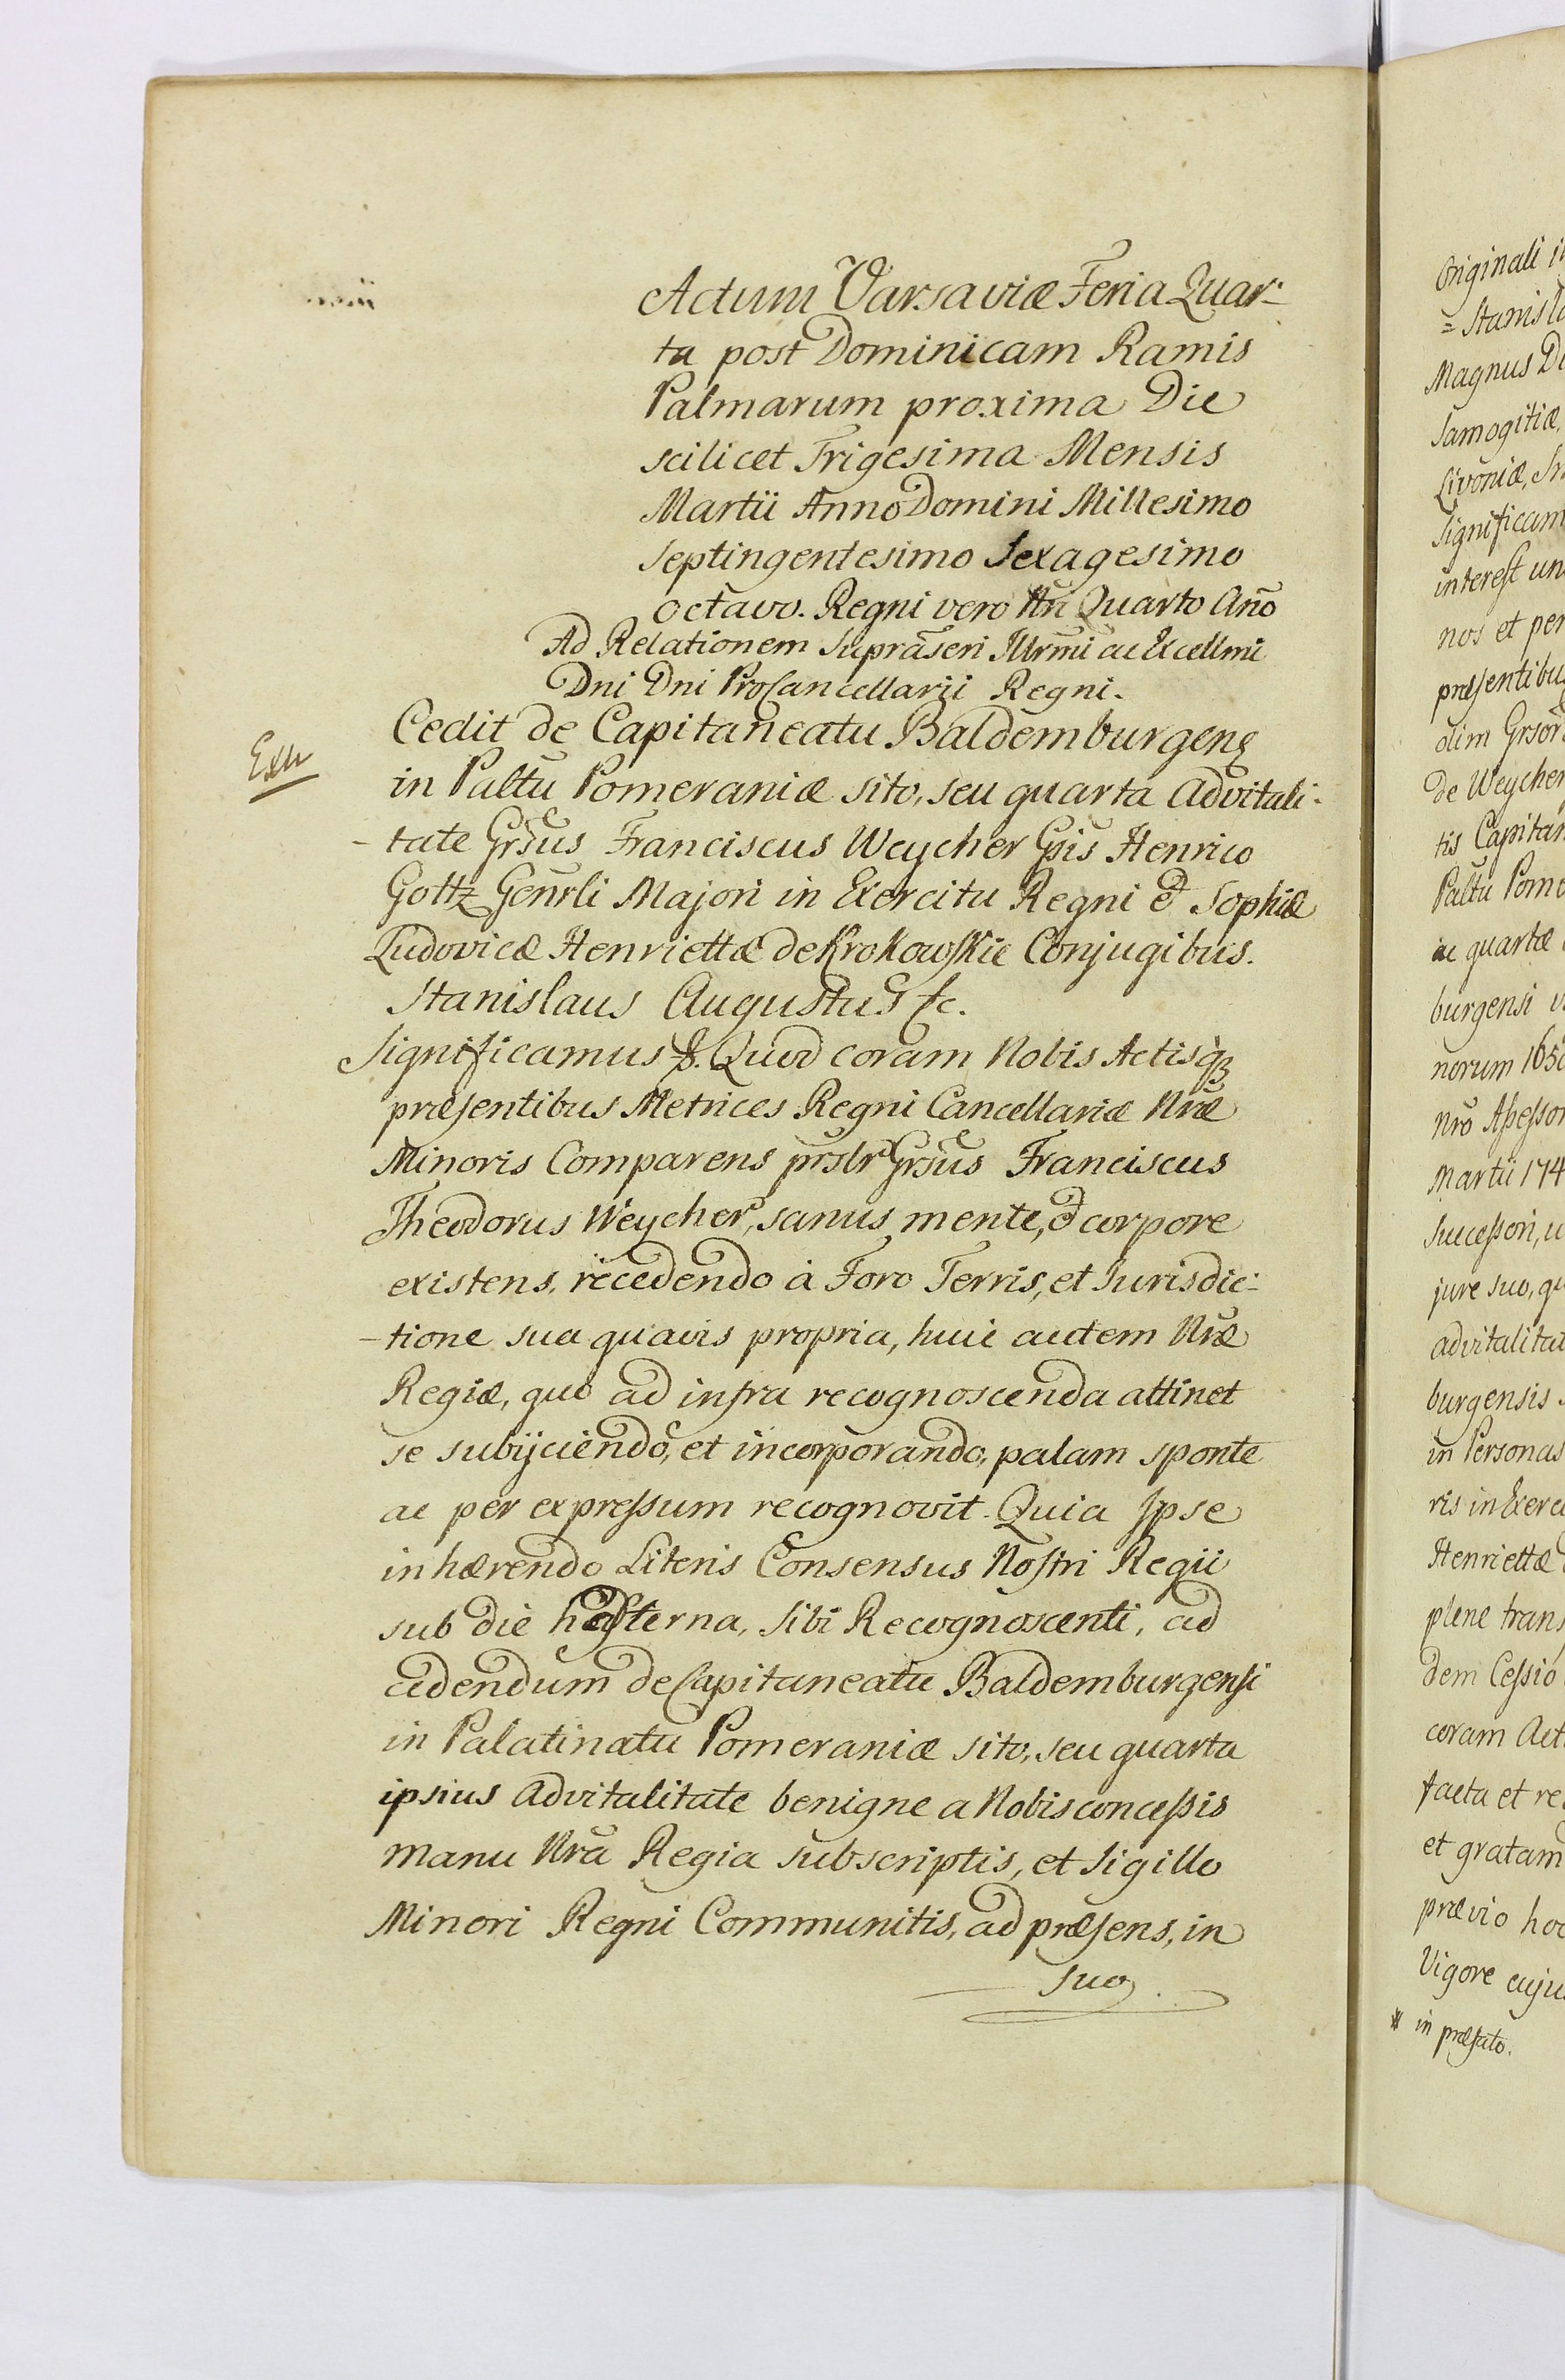 Actum Varsaviæ Feria Quar-
ta post Dominicam Ramis
Palmarum proxima Die
scilicet Trigesima Mensis
Martii Anno Domini Millesimo
Septingentesimo Sexagesimo
octavo. Regni vero Nri Quarto Año
Ad Relationem Suprascri Illrmi ac Excellmi
Dni Dni ProCancellarii Regni.
Exu
Cedit de Capitaneatu Baldemburgenę
in Paltũ Pomeraniæ sito, seu quarta Advitali-
-tate Grsũs Franciscus Weycher Gsis Henrico
Goltz Genrli Majori in Exercitu Regni et Sophiæ
Ludovicæ Henriettæ de Krokowskie Conjugibus.
Stanislaus Augustus &c.
Significamus &. Quod coram Nobis Actisqȝ
præsentibus Metrices Regni Cancellariæ Nræ
Minoris Comparens prslr Grsũs Franciscus
Theodorus Weycher, sanus mente, et corpore
existens, recedendo à Foro Terris, et Jurisdic-
-tione sua quavis propria, huic autem Nræ
Regiæ, quo ad infra recognoscenda attinet
se subijciendo, et incorporando, palam sponte
ac per expressum recognovit. Quia Ipse
inhærendo Literis Consensus Nostri Regii
sub die hesterna, sibi Recognoscenti, ad
cedendum de Capitaneatu Baldemburgensi
in Palatinatu Pomeraniæ sito, seu quarta
ipsius Advitalitate benigne a Nobis concessis
manu Nrã Regia subscriptis, et Sigillo
Minori Regni Communitis, ad præsens, in
suo.
Originali
=Stanisla
Magnus D
Samogitiæ,
Livoniæ,
Significam
interest un
nos et per
præsentibu
olim Grsor
de Weycher
tis Capitan
Paltũ Pome
ac quartæ
burgensi
norum 165
Nrõ Assessor
Martii 174
Successori, u
jure suo, qu
advitalitat
burgensis
in Personas
ris in Exerci
Henriettæ
plene trans
dem Cessio
coram Act
facta et re
et gratam
prævio hoc
Vigore cuju
* in præfato.